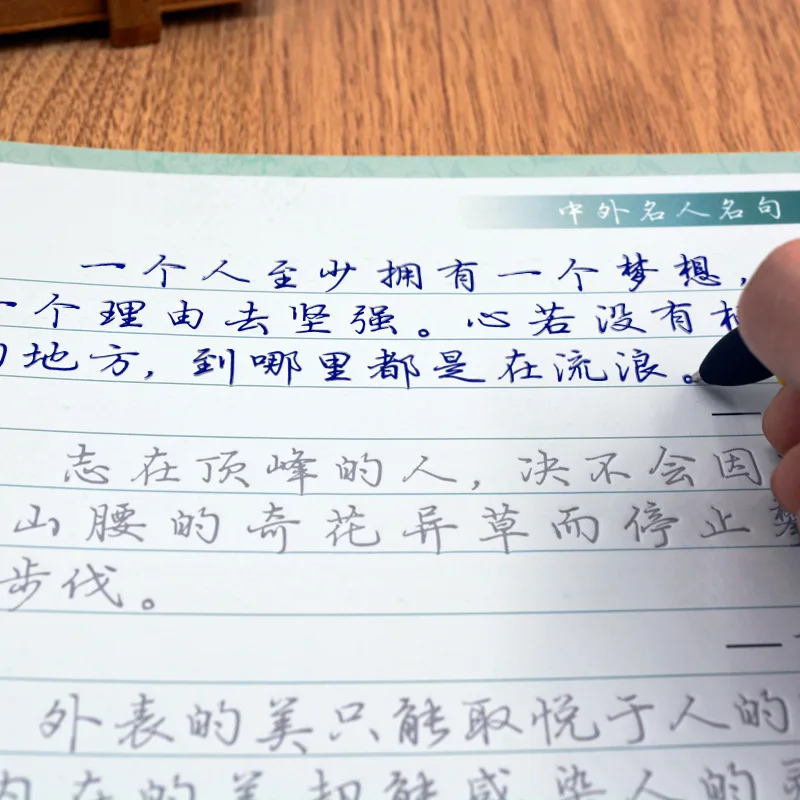 中外名人名句
一个人至少拥有一个梦想，
一个理由去坚强。心若没有
地方，到哪里都是在流浪。
志在顶峰的人，决不会因
山腰的奇花异草而停止
步伐。
外表的美只能取悦于人的
内在的美却能感染人的